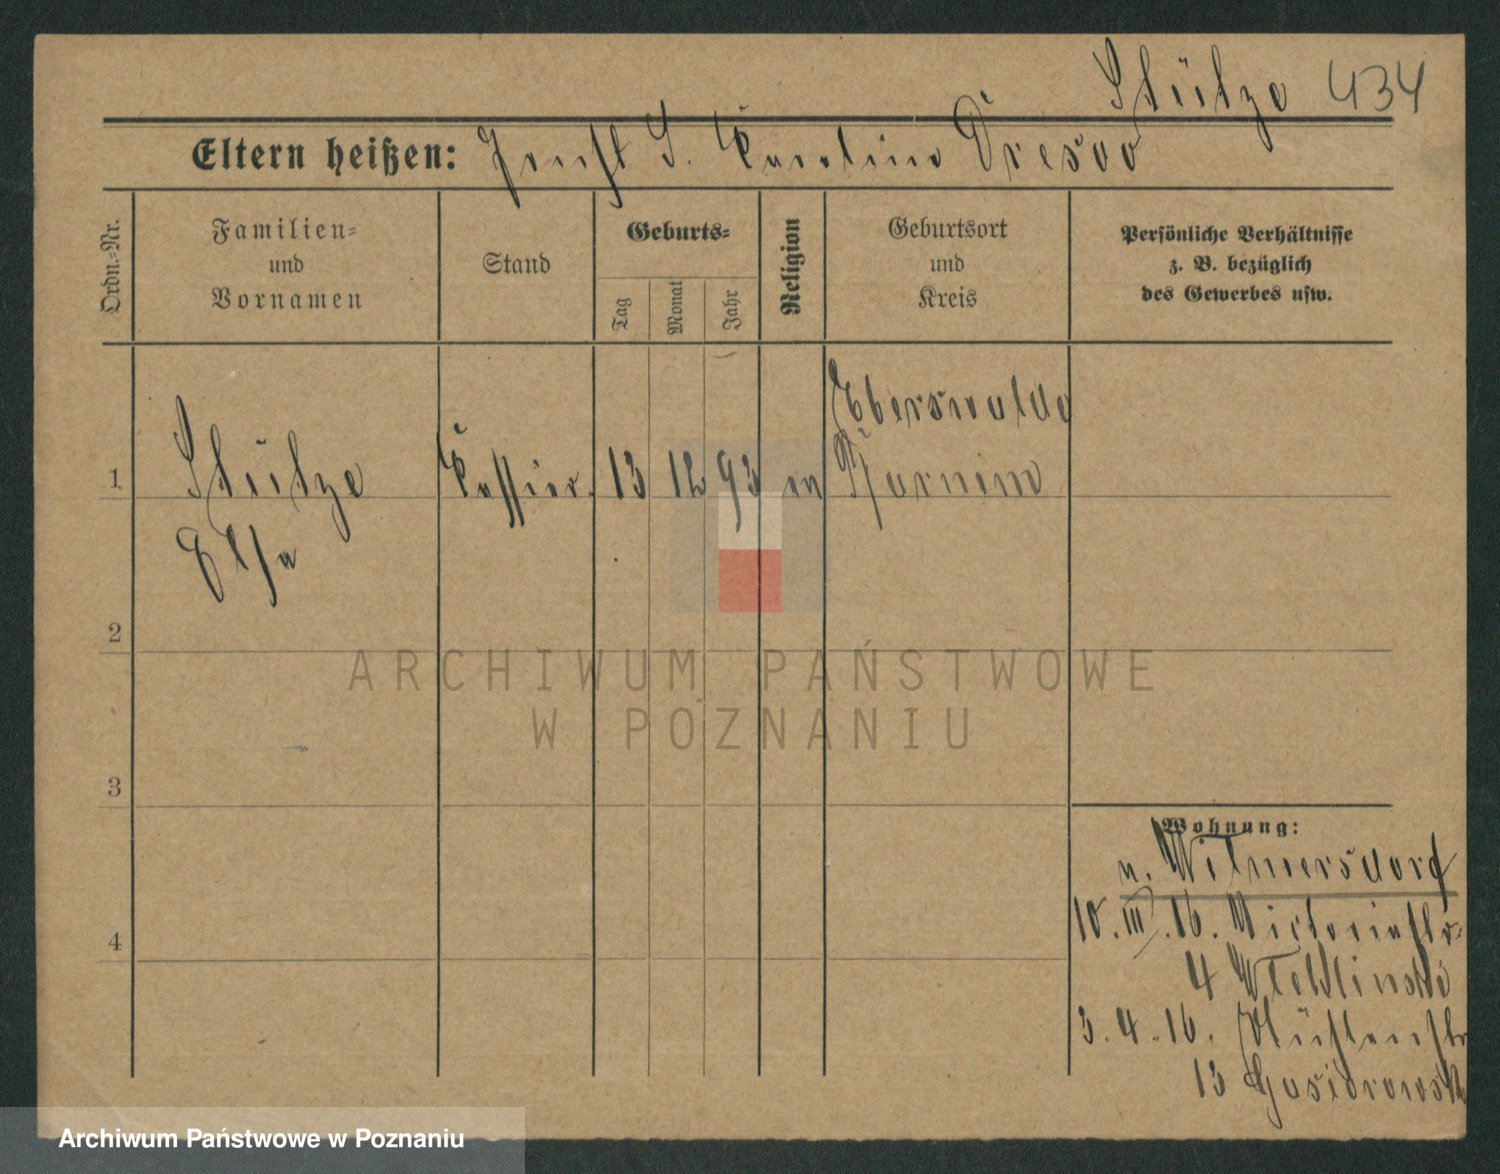 Stütze 434
Eltern heißen: Ernst S. Karoline Dresow
Ordn.-Nr.
Familien-
und
Vornamen
Stand
Geburts-
Tag
Monat
Jahr
Religion
Geburtsort
und
Kreis
Persönliche Verhältnisse
z. B. bezüglich
des Gewerbes usw.
1
Stütze
Elsa
Kassier. 13 12 93 ev
Eberswalde
Barnim
2
3
4
Wohnung:
n. Wilmersdorf
10. III. 16. Victoriastr.
4
3. 4. 16.
13
ARCHIWUM PAŃSTWOWE
W POZNANIU
Archiwum Państwowe w Poznaniu